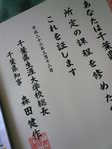 あなたは千葉県
所定の課程を修めた
これを証します
平成二十
千葉県生涯大学校総長
千葉県知事 森田健作